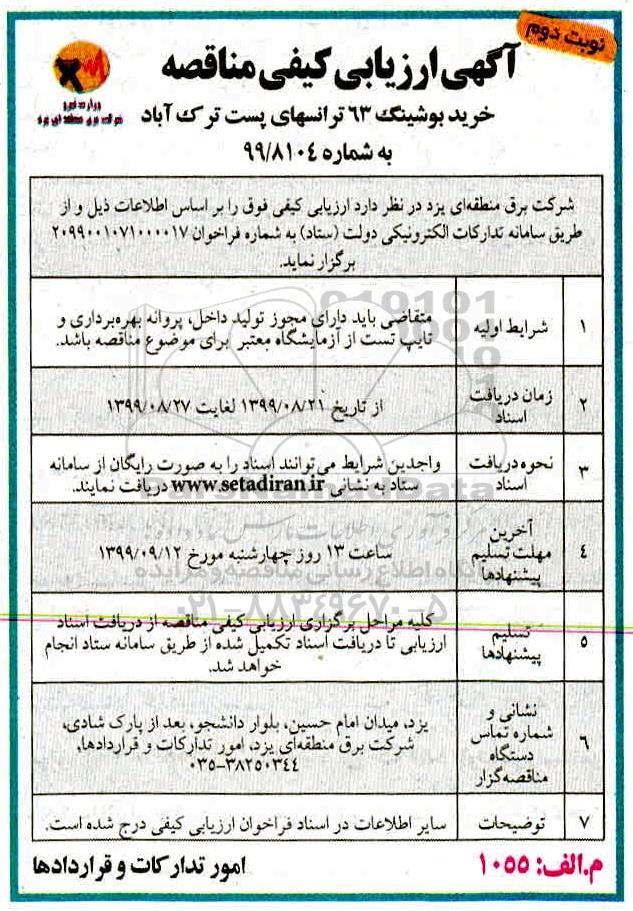 نوبت دوم
آگهی ارزیابی کیفی مناقصه
خرید بوشینگ ۶۳ ترانسهای پست ترک آباد
به شماره ۹۹/۸۱۰۴
وزارت نیرو
شرکت برق منطقه ای یزد
شرکت برق منطقه‌ای یزد در نظر دارد ارزیابی کیفی فوق را بر اساس اطلاعات ذیل و از
طریق سامانه تدارکات الکترونیکی دولت (ستاد) به شماره فراخوان ۲۰۹۹۰۰۱۰۷۱۰۰۰۰۱۷
برگزار نماید.
۱
شرایط اولیه
متقاضی باید دارای مجوز تولید داخل، پروانه بهره‌برداری و
تایپ تست از آزمایشگاه معتبر برای موضوع مناقصه باشد.
۲
زمان دریافت
اسناد
از تاریخ ۱۳۹۹/۰۸/۲۱ لغایت ۱۳۹۹/۰۸/۲۷
۳
نحوه دریافت
اسناد
واجدین شرایط می‌توانند اسناد را به صورت رایگان از سامانه
ستاد به نشانی www.setadiran.ir دریافت نمایند.
۴
آخرین
مهلت تسلیم
پیشنهادها
ساعت ۱۳ روز چهارشنبه مورخ ۱۳۹۹/۰۹/۱۲
۵
تسلیم
پیشنهادها
کلیه مراحل برگزاری ارزیابی کیفی مناقصه از دریافت اسناد
ارزیابی تا دریافت اسناد تکمیل شده از طریق سامانه ستاد انجام
خواهد شد.
۶
نشانی و
شماره تماس
دستگاه
مناقصه‌گزار
یزد، میدان امام حسین، بلوار دانشجو، بعد از پارک شادی،
شرکت برق منطقه‌ای یزد، امور تدارکات و قراردادها،
۰۳۵-۳۸۲۵۰۳۴۴
۷
توضیحات
سایر اطلاعات در اسناد فراخوان ارزیابی کیفی درج شده است.
م.الف: ۱۰۵۵
امور تدارکات و قراردادها
۰۲۱-۸۸۳۴۹۶۷۰-۵